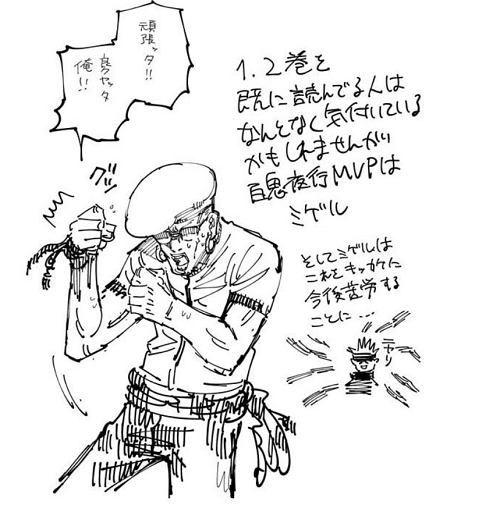 頑張ッタ!!
良ヤッタ
俺!!
グッ
1.2巻を
既に読んでる人は
なんとなく気付いている
かもしれませんが
百鬼夜行MVPは
ミゲル
そしてミゲルは
これをキッカケに
今後苦労する
ことに…
ニヤリ